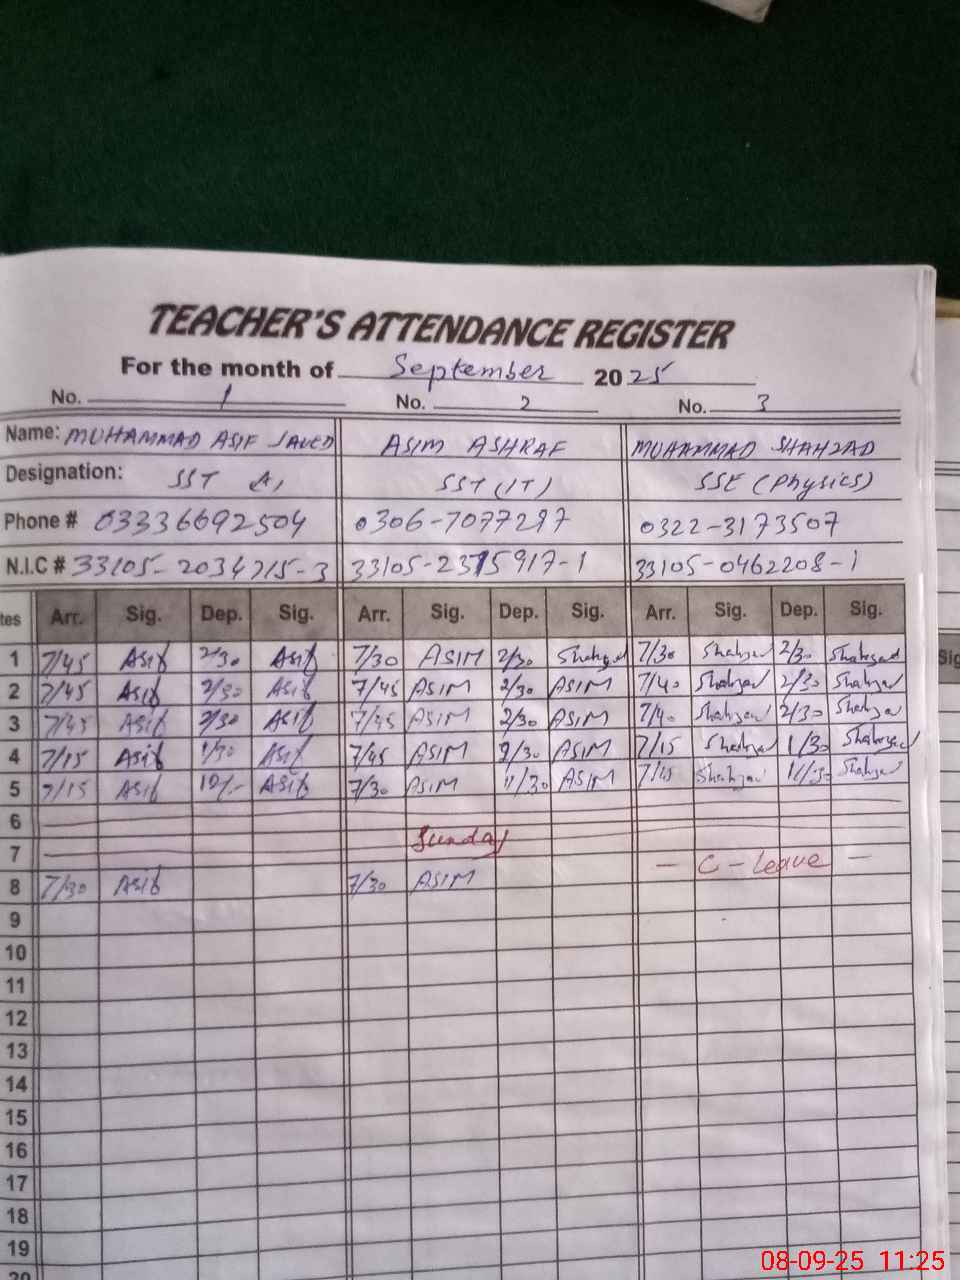 TEACHER'S ATTENDANCE REGISTER
For the month of September 2025
No. 1 No. 2 No. 3
Name: MUHAMMAD ASIF JAVED ASIM ASHRAF MUHAMMAD SHAHZAD
Designation: SST SST (IT) SSE (Physics)
Phone # 03336692504 0306-7077297 0322-3173507
N.I.C # 33105-2034715-3 33105-2375917-1 33105-0462208-1
tes Arr. Sig. Dep. Sig. Arr. Sig. Dep. Sig. Arr. Sig. Dep. Sig.
Sig
1 7/45 Asif 2/30 Asif 7/30 ASIM 2/30 Shahzad 7/30 Shahzad 2/30 Shahzad
2 7/45 Asif 2/30 Asif 7/45 ASIM 2/30 ASIM 7/40 Shahzad 2/30 Shahzad
3 7/45 Asif 2/30 Asif 7/45 ASIM 2/30 ASIM 7/40 Shahzad 2/30 Shahzad
4 7/15 Asif 1/30 Asif 7/45 ASIM 2/30 ASIM 7/15 Shahzad 1/30 Shahzad
5 7/15 Asif Asif 7/30 ASIM 11/30 ASIM 7/15 Shahzad 11/30 Shahzad
6
7 Sunday
8 7/30 Asif 7/30 ASIM - C-leave -
9
10
11
12
13
14
15
16
17
18
19
20
08-09-25 11:25